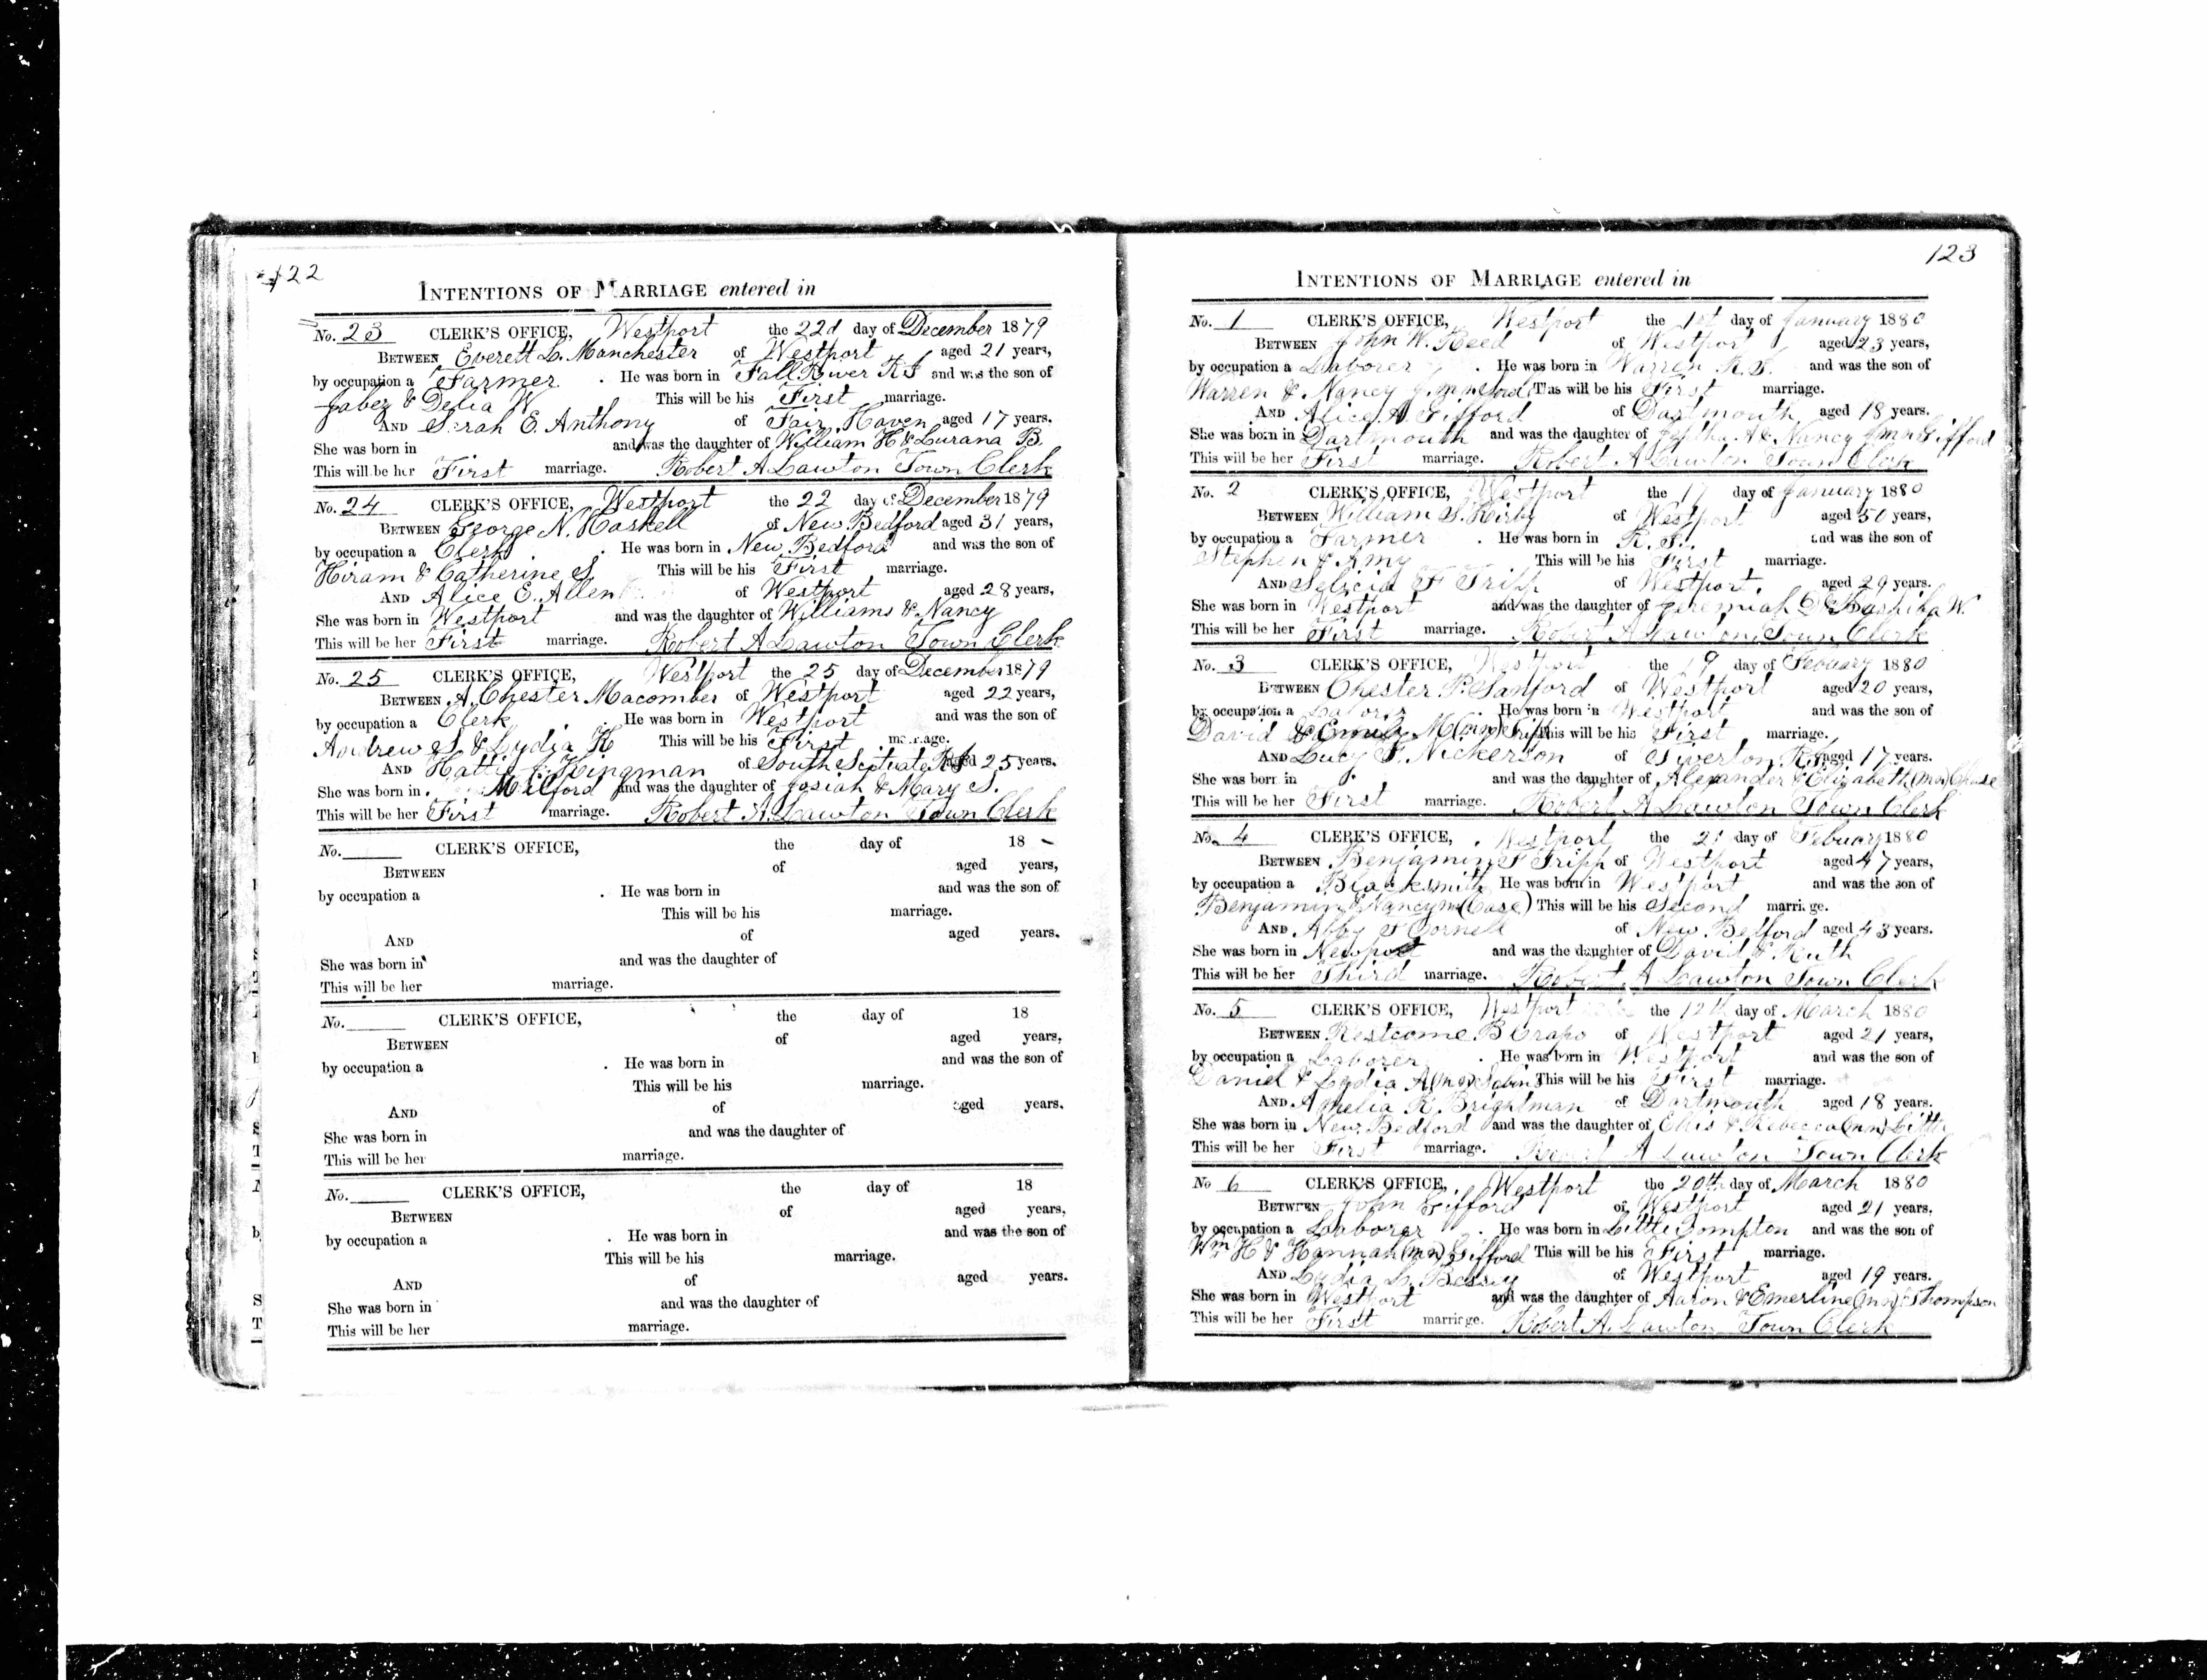 122
INTENTIONS OF MARRIAGE entered in
No. 23 CLERK'S OFFICE, Westport the 22d day of December 1879
BETWEEN Everett L. Manchester of Westport aged 21 years,
by occupation a Farmer. He was born in Fall River R I and was the son of
Jabez & Delia W This will be his First marriage.
AND Sarah E. Anthony of Fair Haven aged 17 years.
She was born in and was the daughter of William H & Lurana B.
This will be her First marriage. Robert A Lawton Town Clerk
No. 24 CLERK'S OFFICE, Westport the 22 day of December 1879
BETWEEN George N. Haskell of New Bedford aged 31 years,
by occupation a Clerk. He was born in New Bedford and was the son of
Hiram & Catherine S This will be his First marriage.
AND Alice E. Allen of Westport aged 28 years,
She was born in Westport and was the daughter of Williams & Nancy
This will be her First marriage. Robert A Lawton Town Clerk
No. 25 CLERK'S OFFICE, Westport the 25 day of December 1879
BETWEEN A. Chester Macomber of Westport aged 22 years,
by occupation a Clerk. He was born in Westport and was the son of
Andrew S & Lydia H This will be his First marriage.
AND Hattie Kingman of South Scituate aged 25 years.
She was born in Milford and was the daughter of Josiah & Mary S.
This will be her First marriage. Robert A. Lawton Town Clerk
No. CLERK'S OFFICE, the day of 18
BETWEEN of aged years,
by occupation a . He was born in and was the son of
This will be his marriage.
AND of aged years.
She was born in and was the daughter of
This will be her marriage.
No. CLERK'S OFFICE, the day of 18
BETWEEN of aged years,
by occupation a . He was born in and was the son of
This will be his marriage.
AND of aged years.
She was born in and was the daughter of
This will be her marriage.
No. CLERK'S OFFICE, the day of 18
BETWEEN of aged years,
by occupation a . He was born in and was the son of
This will be his marriage.
AND of aged years.
She was born in and was the daughter of
This will be her marriage.
123
INTENTIONS OF MARRIAGE entered in
No. 1 CLERK'S OFFICE, Westport the 1st day of January 1880
BETWEEN John W. Reed of Westport aged 23 years,
by occupation a Laborer. He was born in Warren R.I. and was the son of
Warren & Nancy J. This will be his First marriage.
AND Alice A. Gifford of Dartmouth aged 18 years.
She was born in Dartmouth and was the daughter of A & Nancy Gifford
This will be her First marriage. Robert A Lawton Town Clerk
No. 2 CLERK'S OFFICE, Westport the 17 day of January 1880
BETWEEN William S. Kirby of Westport aged 50 years,
by occupation a Farmer. He was born in R.I. and was the son of
Stephen & Amy This will be his First marriage.
AND F Tripp of Westport. aged 29 years.
She was born in Westport and was the daughter of Jeremiah W.
This will be her First marriage. Robert A Lawton Town Clerk
No. 3 CLERK'S OFFICE, Westport the 19 day of Febuary 1880
BETWEEN Chester P. Sanford of Westport aged 20 years,
by occupation a Laborer. He was born in Westport and was the son of
David & Emily M (mn) Tripp This will be his First marriage.
AND Lucy F. Nickerson of Tiverton R.I. aged 17 years.
She was born in and was the daughter of Alexander & Elizabeth (mn) Chase
This will be her First marriage. Robert A Lawton Town Clerk
No. 4 CLERK'S OFFICE, Westport the 21 day of Febuary 1880
BETWEEN Benjamin F Tripp of Westport aged 47 years,
by occupation a Blacksmith He was born in Westport and was the son of
Benjamin & Nancy mn (Case) This will be his Second marriage.
AND Abby F Cornell of New Bedford aged 43 years.
She was born in Newport and was the daughter of David & Ruth
This will be her Third marriage. Robert A Lawton Town Clerk
No. 5 CLERK'S OFFICE, Westport the 12th day of March 1880
BETWEEN Restcome B Crapo of Westport aged 21 years,
by occupation a Laborer. He was born in Westport and was the son of
Daniel & Lydia A (mn) This will be his First marriage.
AND Amelia R Brightman of Dartmouth aged 18 years.
She was born in New Bedford and was the daughter of & Rebecca (mn)
This will be her First marriage. Robert A Lawton Town Clerk
No 6 CLERK'S OFFICE, Westport the 20th day of March 1880
BETWEEN John Gifford of Westport aged 21 years.
by occupation a Laborer. He was born in Little Compton and was the son of
Wm H & Hannah (mn) Gifford This will be his First marriage.
AND Lydia L. of Westport aged 19 years.
She was born in Westport and was the daughter of Aaron & Emerline (mn) Thompson
This will be her First marriage. Robert A. Lawton Town Clerk